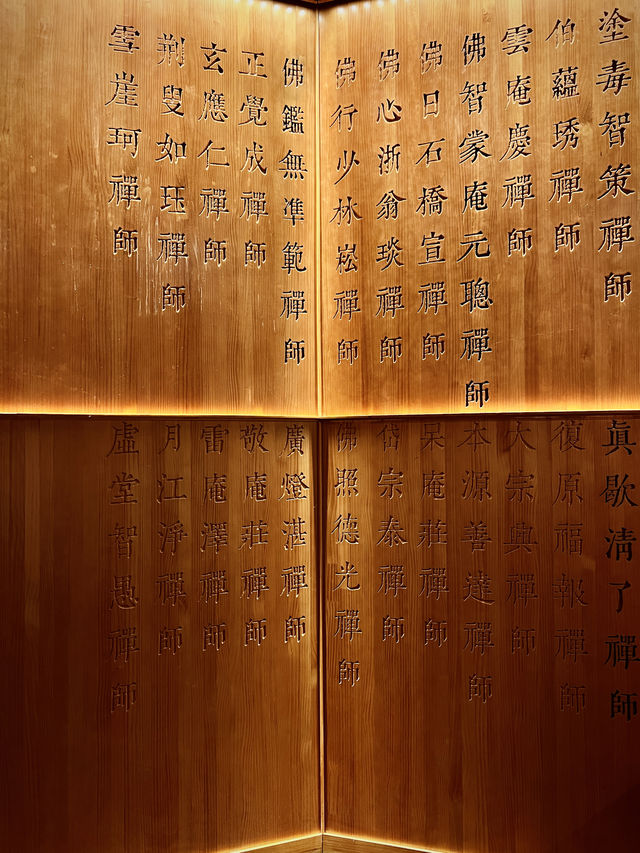 塗毒智策禪師
伯蘊琇禪師
雲庵慶禪師
佛智蒙庵元聰禪師
佛日石橋宣禪師
佛心浙翁琰禪師
佛行少林崧禪師
佛鑑無準範禪師
正覺成禪師
玄應仁禪師
荆叟如珏禪師
雪崖珂禪師
真歇淸了禪師
復原福報禪師
大宗興禪師
本源善達禪師
呆庵莊禪師
岱宗泰禪師
佛照德光禪師
廣燈湛禪師
敬庵莊禪師
雷庵澤禪師
月江淨禪師
虛堂智愚禪師